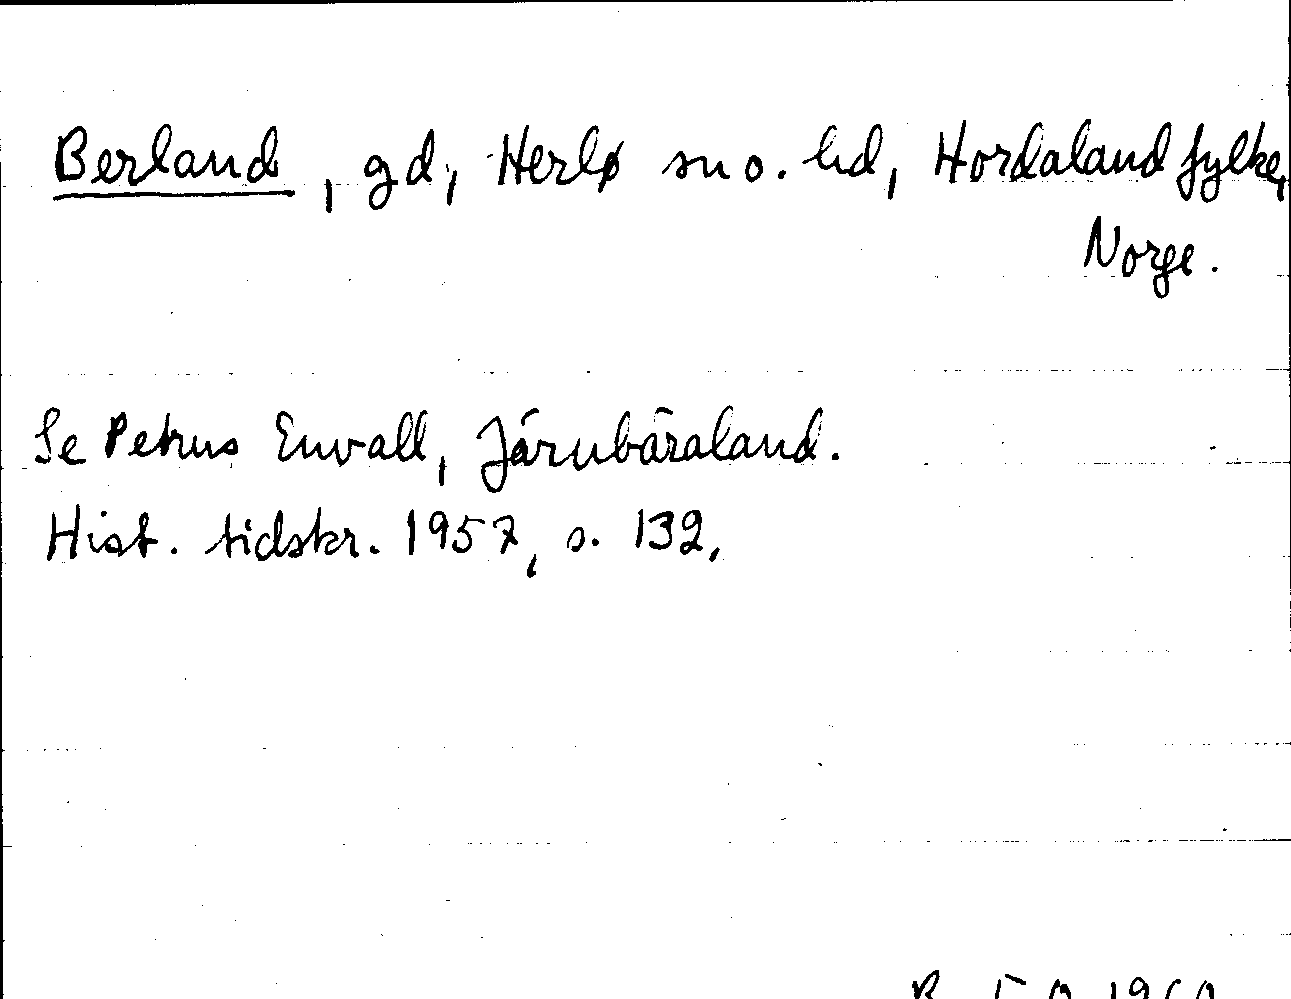 Berland, gd, Herlø sn o. hd, Hordaland fylke,
Norge.
Se Petrus Envall, Järnbäraland.
Hist. tidskr. 1957, s. 132.